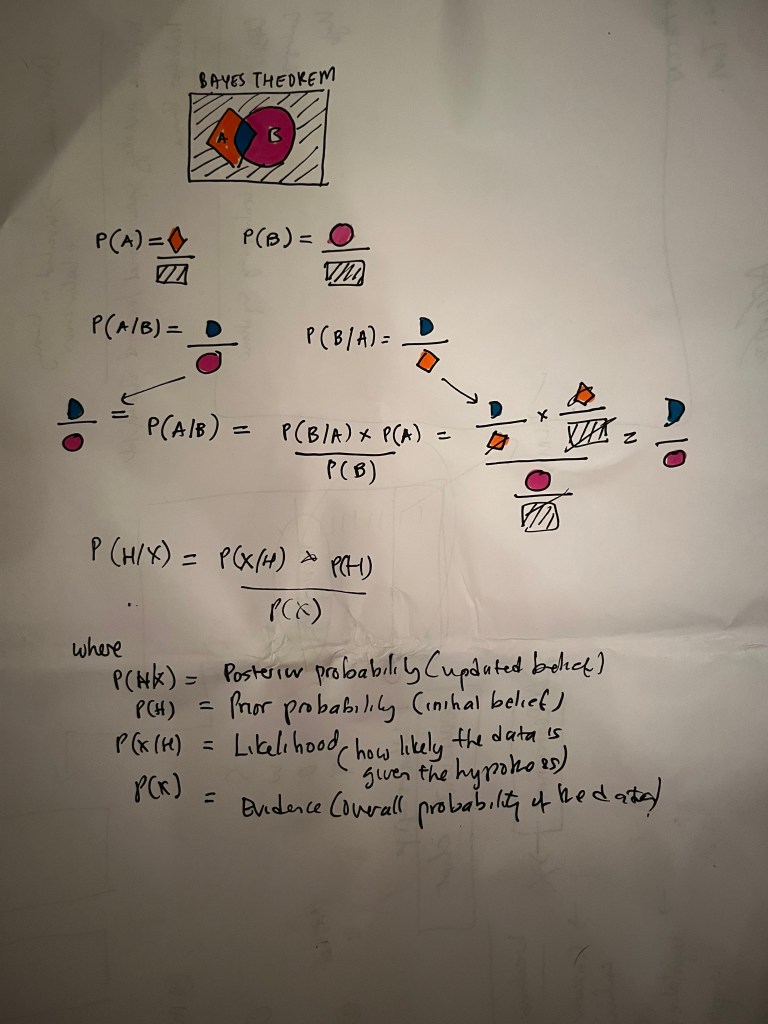 BAYES THEOREM
A B
P(A) = P(B) =
P(A/B) = P(B/A) =
= P(A/B) = P(B/A) × P(A) = × =
P(B)
P(H/X) = P(X/H) × P(H)
P(X)
where
P(H/X) = Posterior probability (updated belief)
P(H) = Prior probability (initial belief)
P(X/H) = Likelihood (how likely the data is
given the hypothesis)
P(X) = Evidence (overall probability of the data)